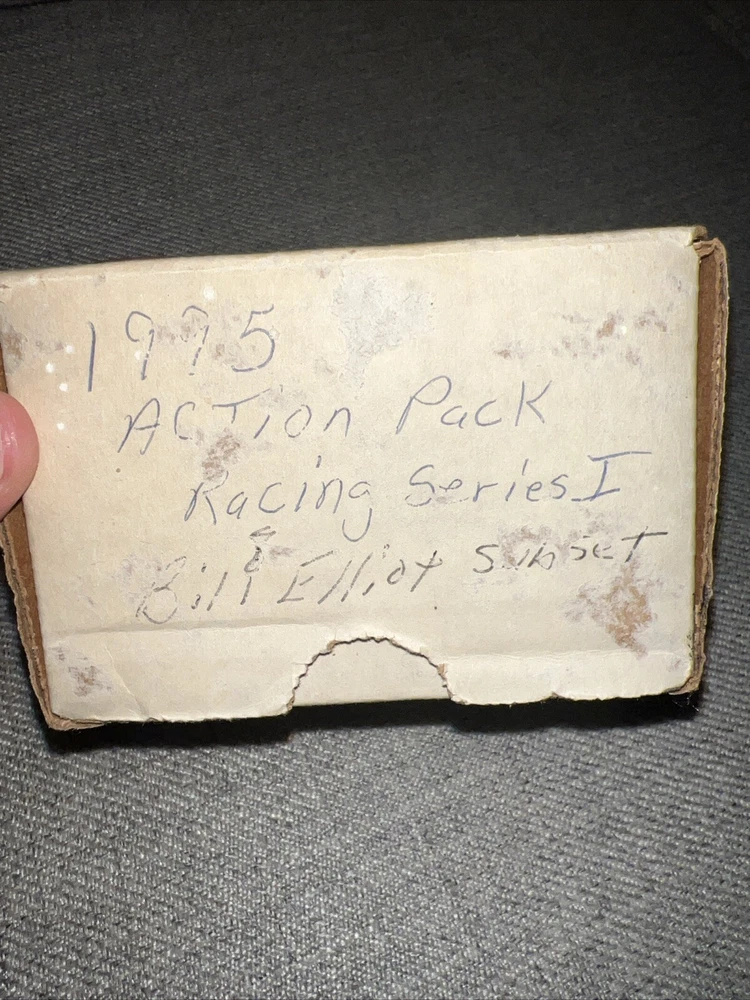 1995
ACTion Pack
Racing Series I
&
Bill Elliot SubSeT